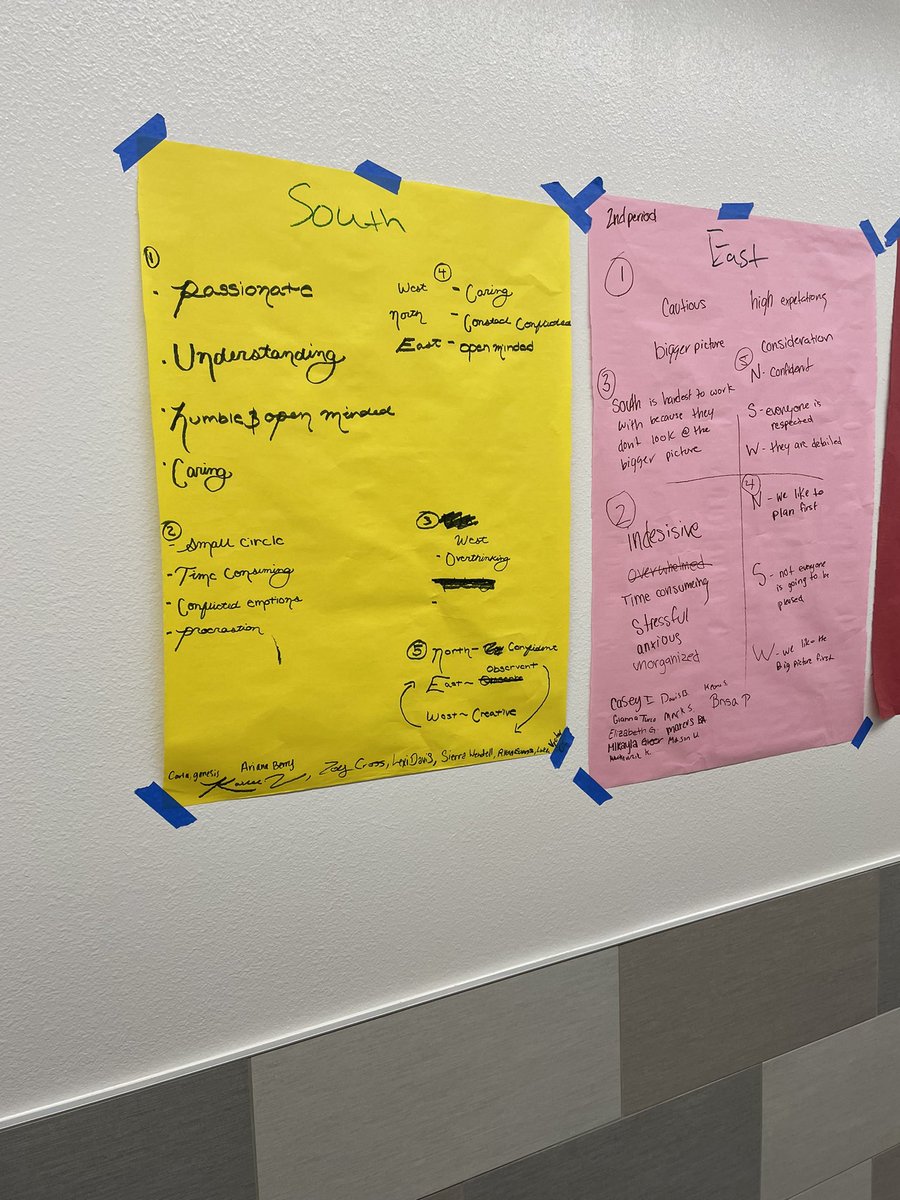 South
①
· Passionate
· Understanding
· Humble & open minded
· Caring
④
West - Caring
North - Constact Conflicted
East - open minded
②
- Small circle
- Time Consuming
- Conflicted emotions
- Procrastion
③
West
- Overthinking
-
⑤
North - Confidence
East - Observant
West - Creative
Carla, genesis
Ariana Berry
Zoey Cross, Lexi Davis, Sierra Wendell,
2nd period
East
①
Cautious
high expetations
bigger picture
consideration
③
South is hardest to work
with because they
dont look @ the
bigger picture
⑤
N - confident
S - everyone is
respected
W - they are detailed
②
Indesisive
overwhelmed
Time consumeing
Stressful
anxious
unorganized
④
N - we like to
plan first
S - not everyone
is going to be
pleased
W - we like the
Big picture first
Casey I Davis B.
Gianna Mark S. Brisa P
Elizabeth G. Marcus
Mikayla Mason U.